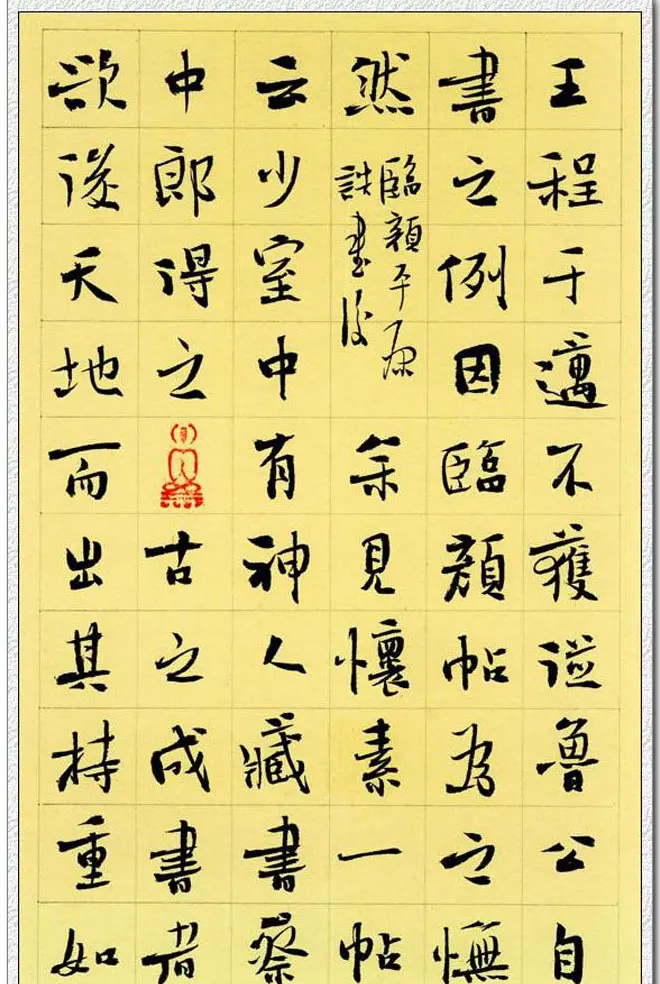 王程于邁不獲謚魯公自
書之例因臨顏帖為之憮
然
臨顏平原
書後
余見懷素一帖
云少室中有神人藏書蔡
中郎得之古之成書者
欲後天地而出其持重如